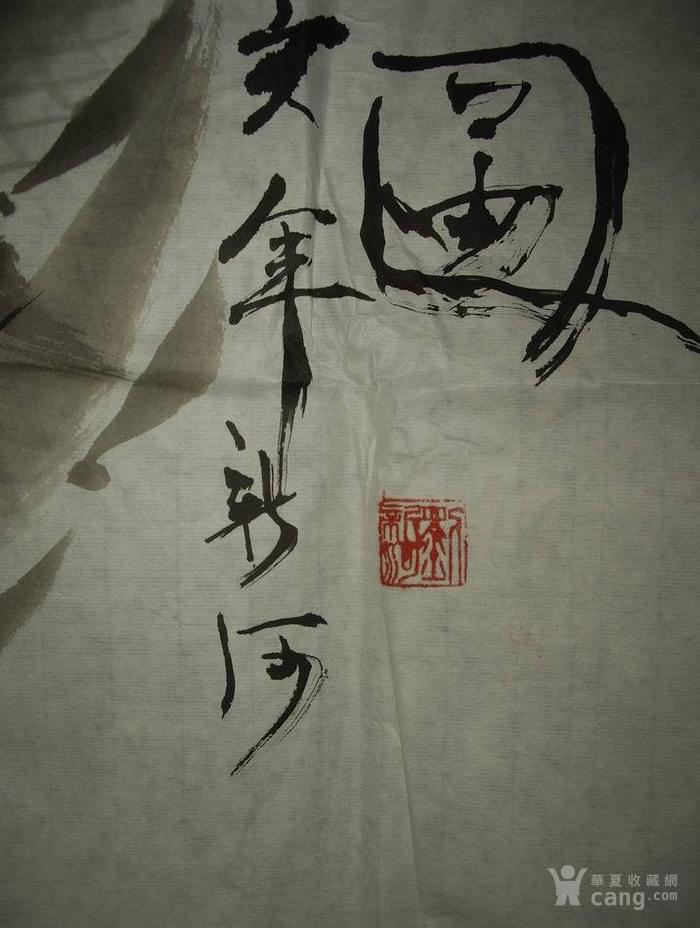 圖
亥年新河
劉新河
華夏收藏網
cang.com